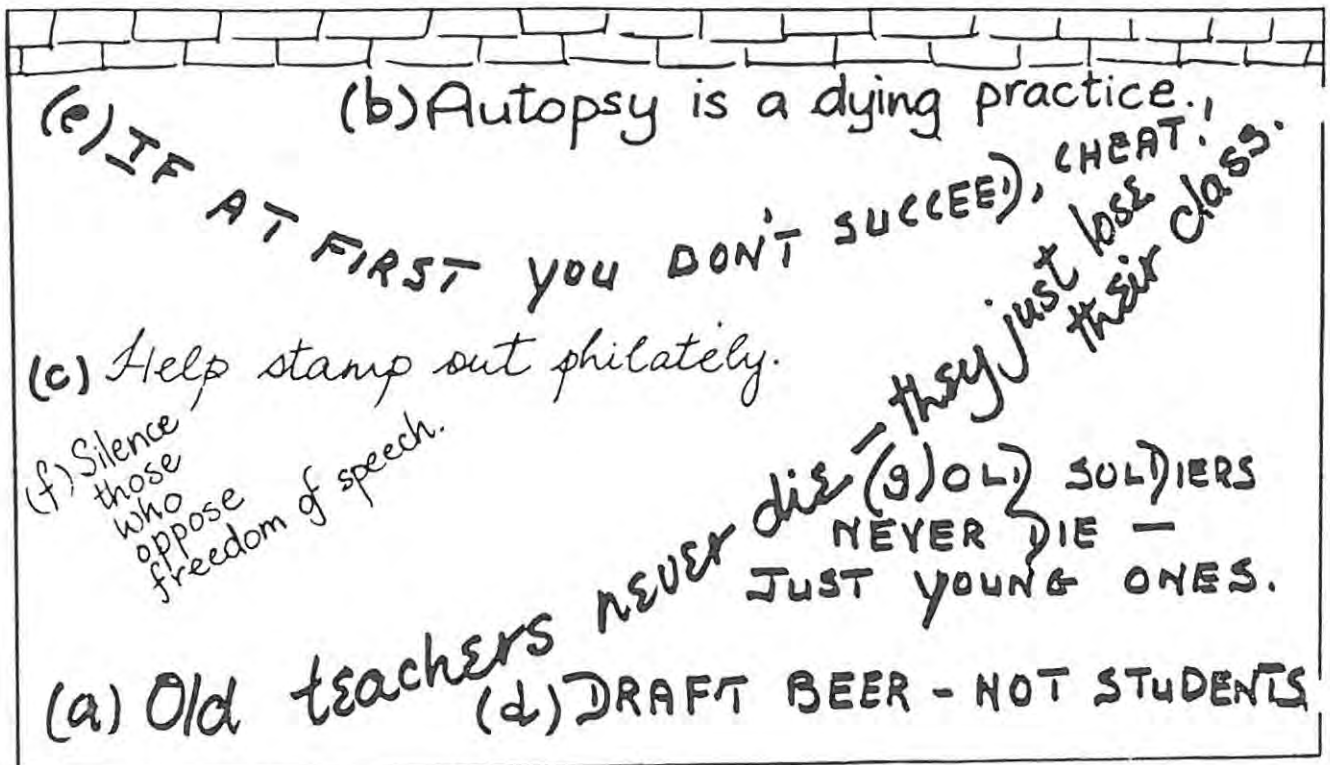 (b) Autopsy is a dying practice.,
(e) IF AT FIRST YOU DON'T SUCCEED, CHEAT!
(c) Help stamp out philately.
(f) Silence
those
who
oppose
freedom of speech.
(a) Old teachers never die - they just lose
their class.
(g) OLD SOLDIERS
NEVER DIE —
JUST YOUNG ONES.
(d) DRAFT BEER - NOT STUDENTS